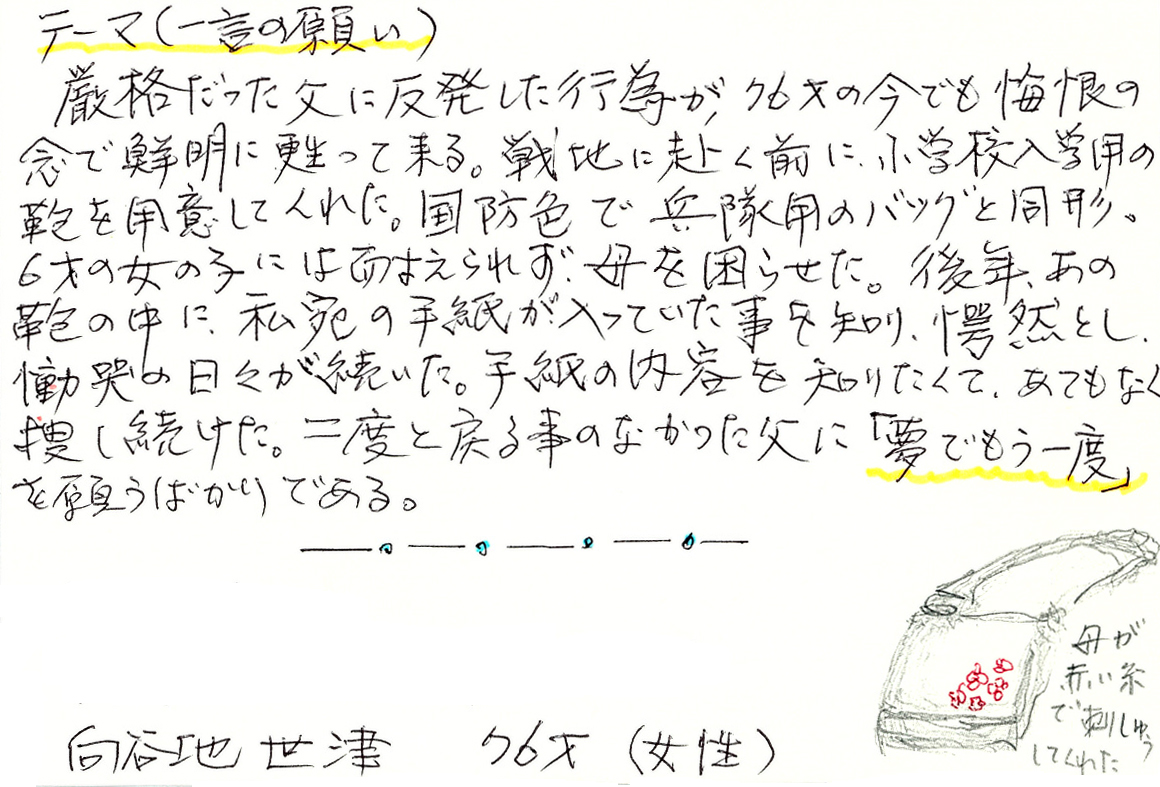 テーマ(一言の願い)
厳格だった父に反発した行為が、76才の今でも悔恨の
念で鮮明に甦って来る。戦地に赴く前に、小学校入学用の
鞄を用意してくれた。国防色で兵隊用のバッグと同形。
6才の女の子には耐えられず、母を困らせた。後年、あの
鞄の中に、私宛の手紙が入っていた事を知り、愕然とし、
慟哭の日々が続いた。手紙の内容を知りたくて、あてもなく
捜し続けた。二度と戻る事のなかった父に「夢でもう一度」
を願うばかりである。
母が
赤い糸
で刺しゅう
してくれた
向谷地世津 76才 (女性)